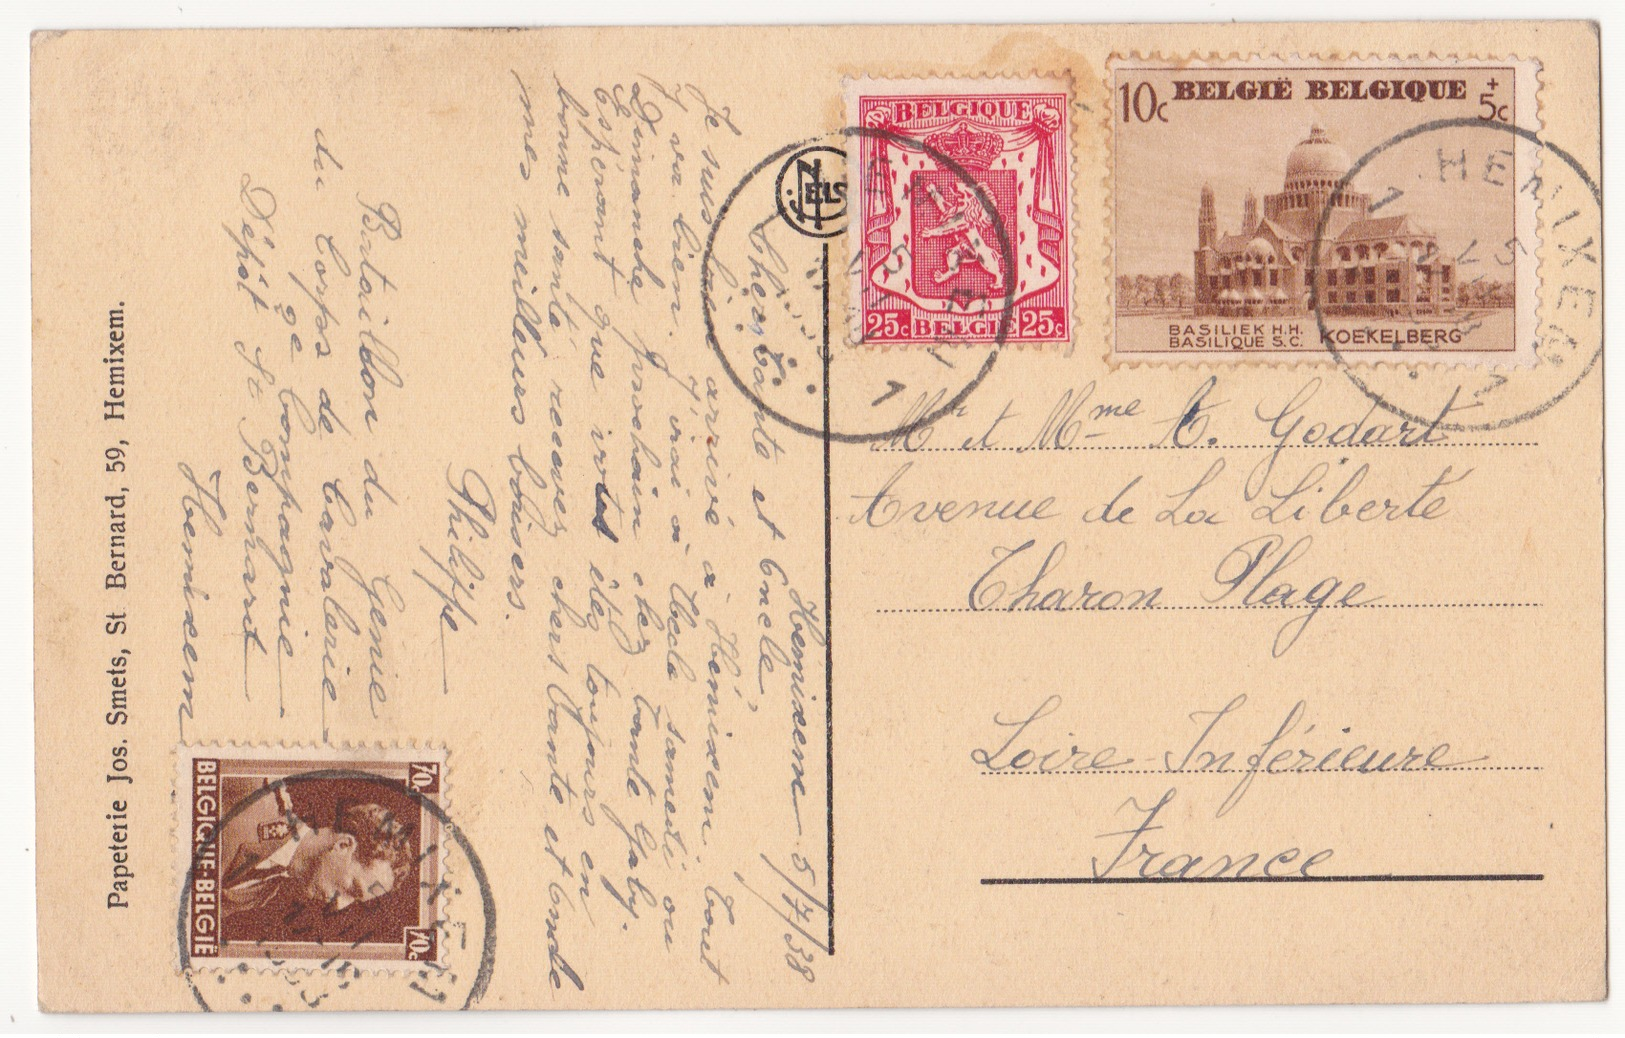 Hemixem 5/7/38
Chers Tante et Oncle,
Je suis bien arrivé à Hémixem, tout
va bien. J'irai à Uccle samedi ou
Dimanche prochain chez tante Gaby.
Espérant que vous êtes toujours en
bonne santé, recevez chers Tante et Oncle
mes meilleurs baisers.
Philippe
Bataillon du Génie
du Corps de Cavalerie
2e Compagnie
Dépôt St Bernard
Hemixem
Papeterie Jos. Smets, St Bernard, 59, Hemixem.
NELS
BELGIQUE
25c BELGIË 25c
10c BELGIË BELGIQUE +5c
BASILIEK H.H.
BASILIQUE S.C. KOEKELBERG
HEMIXEM
Mr et Mme A. Godart
Avenue de La Liberté
Tharon Plage
Loire-Inférieure
France
70c
70c
BELGIQUE-BELGIË
HEMIXEM